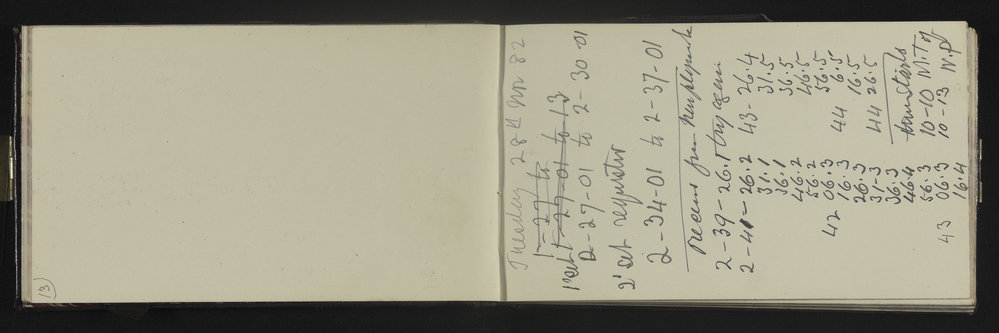 13)
Tuesday 28th Nov 82
1-27 to
1st set 1-27-01 to 13
2-27-01 to 2-30-01
2d set requested
2-34-01 to 2-37-01
Receive from
2-39-26.1 try again
2-41-26.2
31.1
36.1
46.2
56.2
42 06.3
16.3
26.3
31.3
36.3
46.4
56.3
43 06.3
16.4
43-26.4
31.5
36.5
46.5
56.5
44 6.5
16.5
44 26.5
10-10 M.T of
10-13 N.P